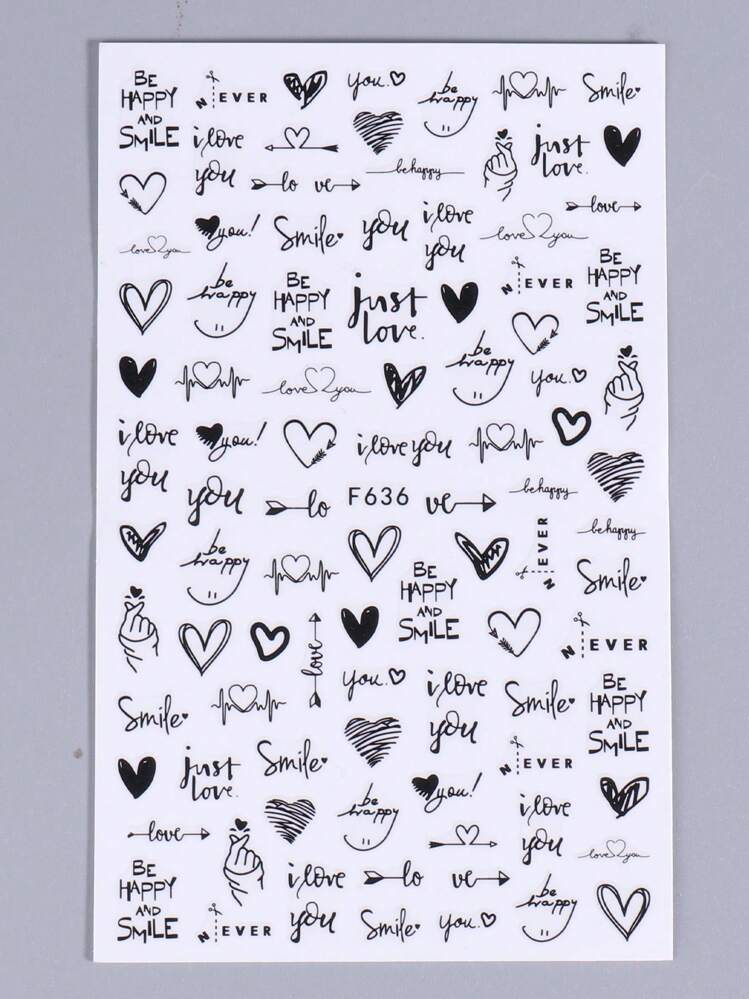 BE
HAPPY
AND
SMILE
N EVER
you.
be
happy
Smile
i love
you
just
love.
lo ve
be happy
love
you!
Smile
you
i love
you
love you
love you
be
happy
BE
HAPPY
AND
SMILE
just
love.
N EVER
BE
HAPPY
AND
SMILE
love you
be
happy
you.
i love
you
you!
i love you
you
lo
F636
ve
be happy
be happy
be
happy
N EVER
Smile
BE
HAPPY
AND
SMILE
love
N EVER
you.
i love
you
Smile
Smile
BE
HAPPY
AND
SMILE
just
love.
Smile
N EVER
be
happy
you!
i love
you
love
love you
BE
HAPPY
AND
SMILE
i love
you
lo ve
be
happy
N EVER
Smile
you.